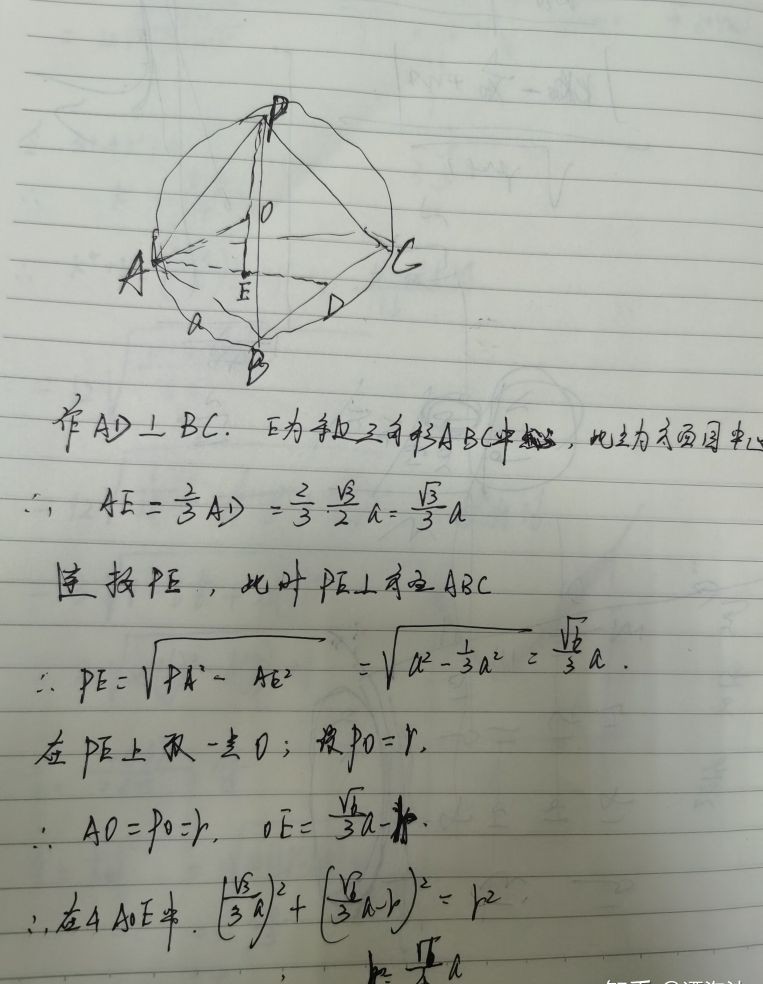 P
O
A
C
E
D
a
B
作 AD⊥BC. E为等边三角形ABC中心, 此点为方面圆中心
∴ AE = 2/3 AD = 2/3 · √3/2 a = √3/3 a
连接PE, 此时 PE⊥平面ABC
∴ PE = √(PA² - AE²) = √(a² - 1/3 a²) = √6/3 a.
在PE上取一点O; 设PO=r,
∴ AO=PO=r, OE= √6/3 a-r.
∴在△AOE中. (√3/3 a)² + (√6/3 a-r)² = r²
a
知乎